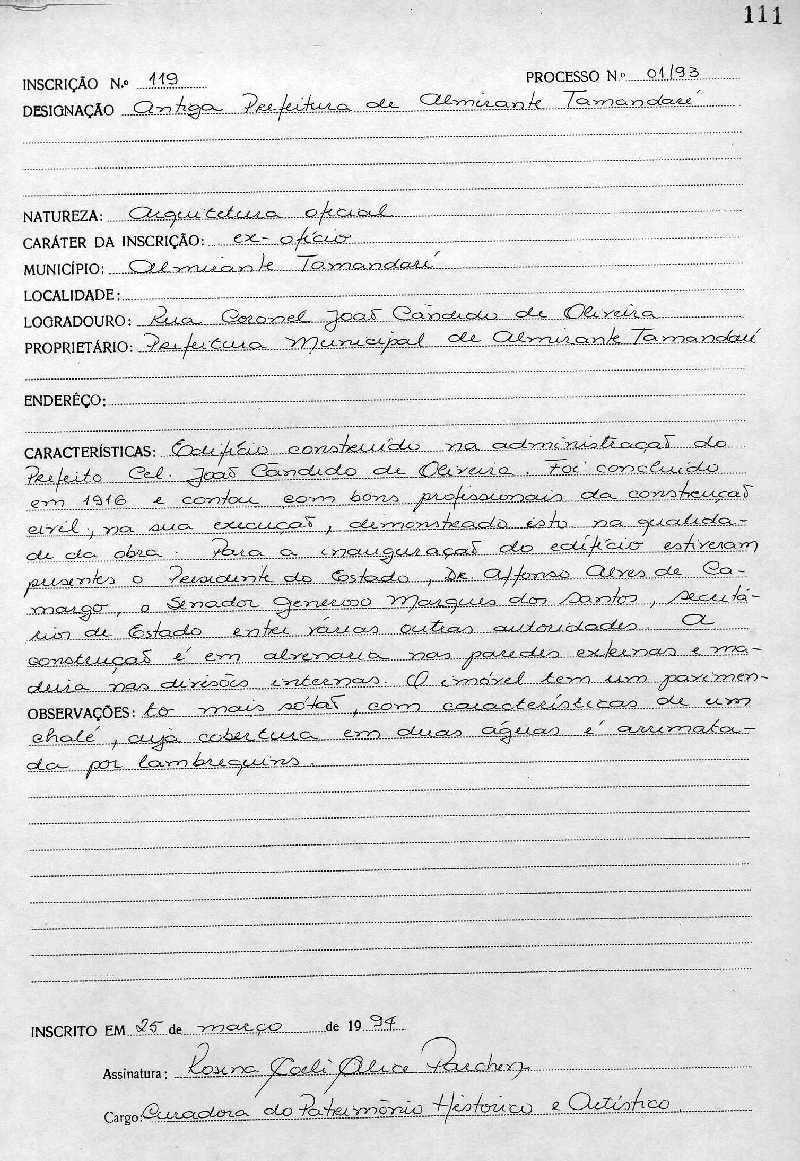 111
INSCRIÇÃO N.º 119 PROCESSO N.º 01/93
DESIGNAÇÃO Antiga Prefeitura de Almirante Tamandaré
NATUREZA: Arquitetura oficial
CARÁTER DA INSCRIÇÃO: ex-ofício
MUNICÍPIO: Almirante Tamandaré
LOCALIDADE:
LOGRADOURO: Rua Coronel João Cândido de Oliveira
PROPRIETÁRIO: Prefeitura Municipal de Almirante Tamandaré
ENDERÊÇO:
CARACTERÍSTICAS: Edifício construído na administração do
Prefeito Cel. João Cândido de Oliveira. Foi concluído
em 1916 e contou com bons profissionais da construção
civil, na sua execução, demonstrado isto na qualida-
de da obra. Para a inauguração do edifício estiveram
presentes o Presidente do Estado, Dr Affonso Alves de Ca-
margo, o Senador Generoso Marques dos Santos, secretá-
rios de Estado entre várias outras autoridades. A
construção é em alvenaria nas paredes externas e ma-
deira nas divisões internas. O imóvel tem um pavimen-
OBSERVAÇÕES: to mais sótão, com características de um
chalé, cuja cobertura em duas águas é arremata-
da por lambrequins.
INSCRITO EM 25 de março de 1994
Assinatura: Rosina Coeli Alice Parchen
Cargo: Curadora do Patrimônio Histórico e Artístico.